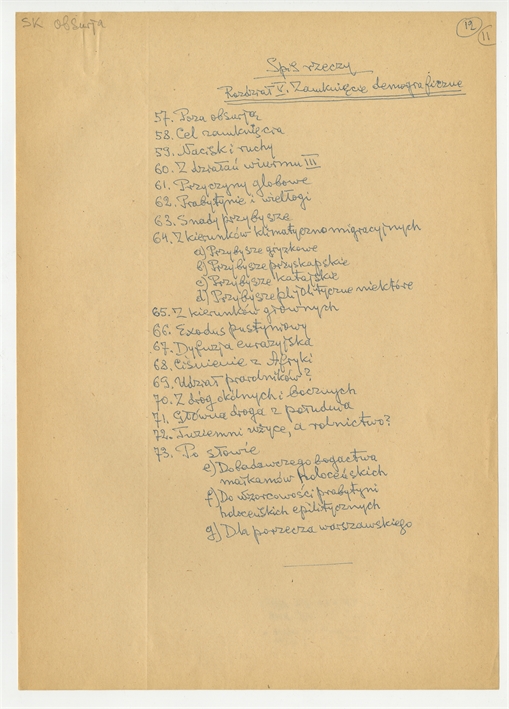 SK obsurja
12
11
Spis rzeczy
Rozdział V. Zamknięcie demograficzne
57. Poza obsurją
58. Cel zamknięcia
59. Naciski ruchy
60. Z działań wiurmu III
61. Przyczyny globowe
62. Prabytynie i wiełłogi
63. Snady przybysze
64. Z kierunków klimatycznomigracyjnych
a) Przybysze gryzkowe
b) Przybysze przyskapskie
c) Przybysze katajskie
d) Przybysze plejolityczne niektóre
65. Z kierunków głównych
66. Exodus pustyniowy
67. Dyfuzja eurazyjska
68. Ciśnienie z Afryki
69. Udział prarolników?
70. Z dróg okólnych i bocznych
71. Główna droga z południa
72. Tuziemni użyce, a rolnictwo?
73. Po słowie
e) Dobadawczego bogactwa
małkamów holoceńskich
f) Do wzorcowości prabytyni
holoceńskich epilitycznych
g) Dla porzecza warszawskiego